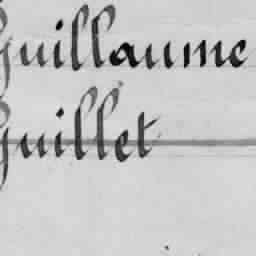 Guillaume
Guillet